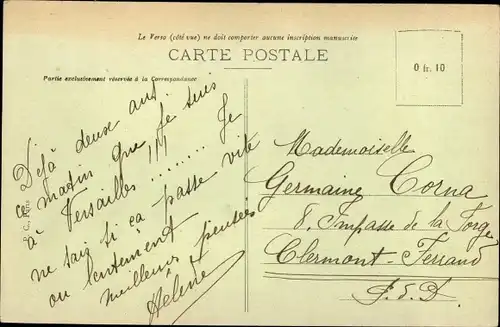 Le Verso (côté vue) ne doit comporter aucune inscription manuscrite
CARTE POSTALE
Partie exclusivement réservée à la Correspondance
0 fr. 10
Déjà deux ans
ce matin que je suis
à Versailles !!! ........ Je
ne sais si ça passe vite
ou lentement
Meilleures pensées
Hélène
Mademoiselle
Germaine Corna
8, Impasse de la Forge
Clermont-Ferrand
P. d. D.